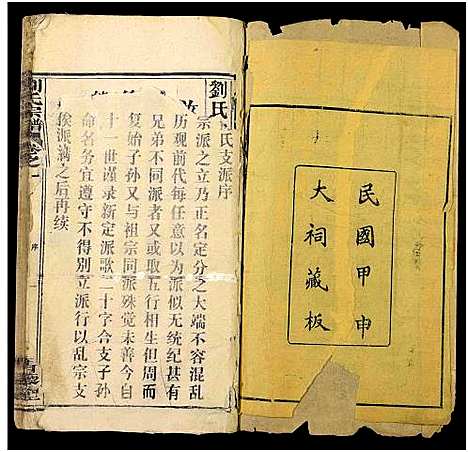 民國甲申
大祠藏板
劉氏
氏支派序
宗派之立乃正名定分之大端不容混乱
历观前代每任意以为派似无统纪甚有
兄弟不同派者又或取五行相生但周而
复始子孙又与祖宗同派殊觉未善今自
十一世谨录新定派歌二十字合支子孙
命名务宜遵守不得别立派行以乱宗支
俟派满之后再续
劉氏宗譜
卷之一
序
一